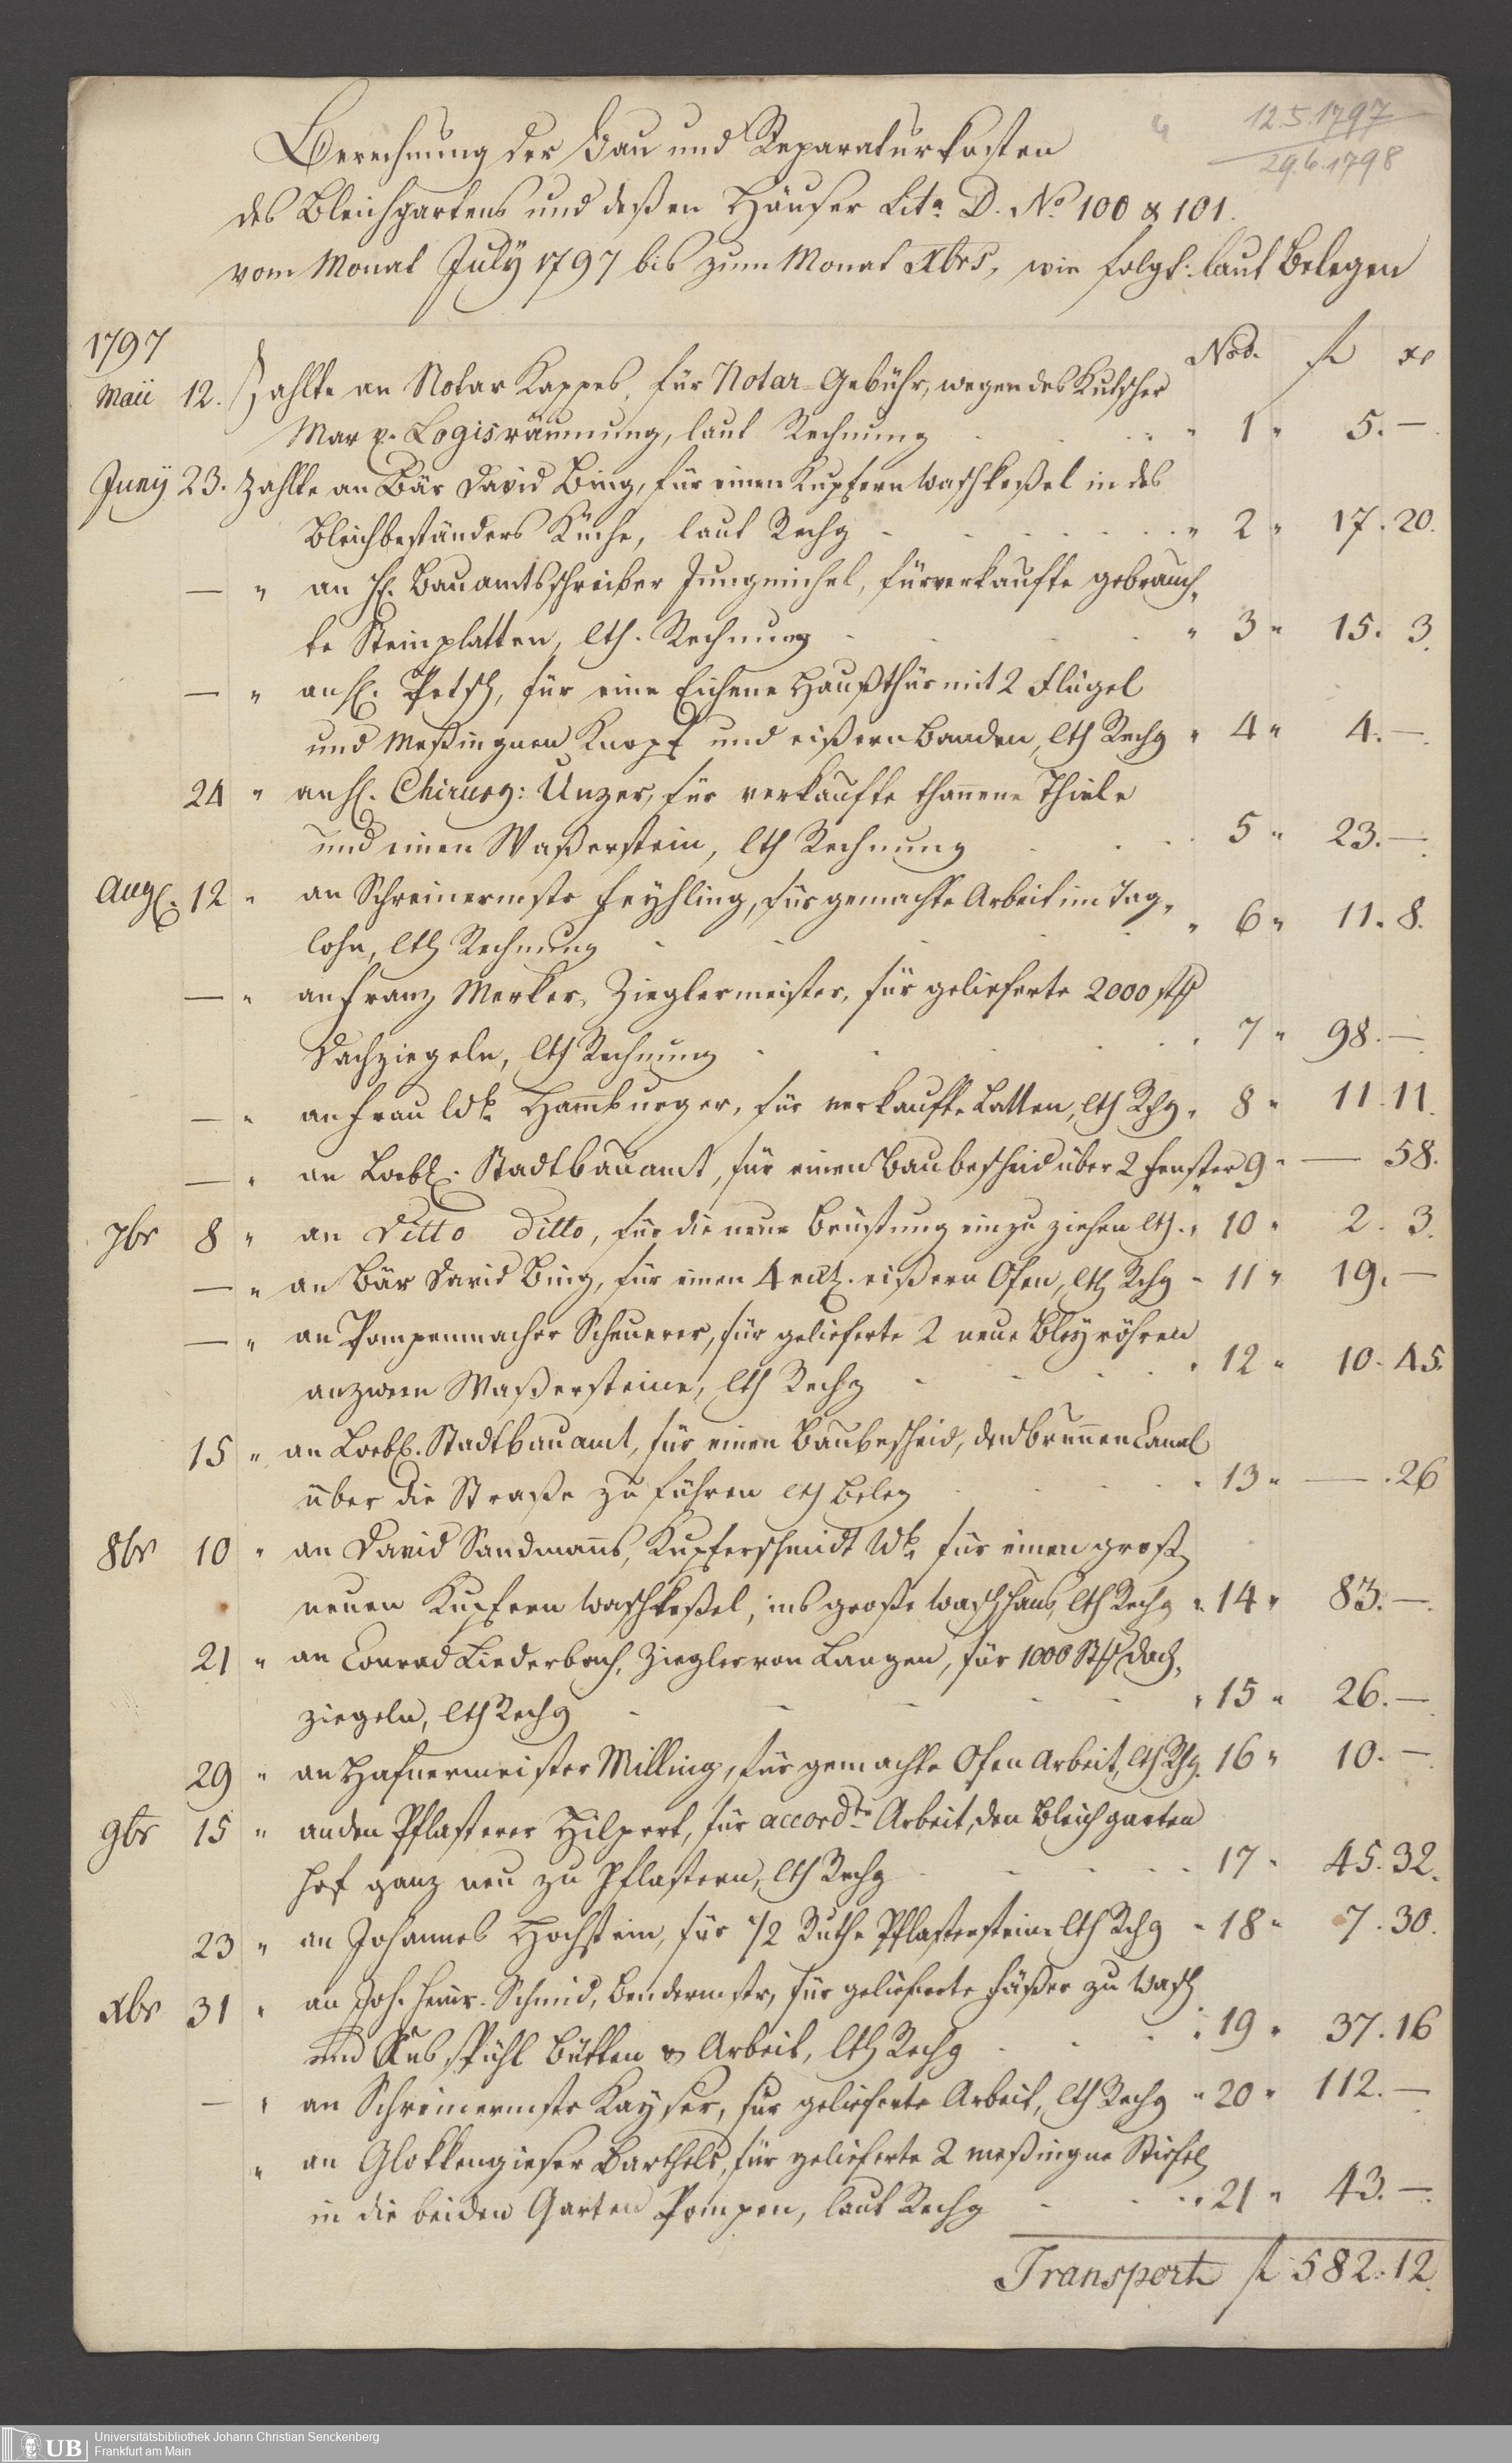 12.5.1797
29.6.1798
Berechnung der Bau und Reparaturkosten
des Bleichgartens und deßen Häuser Lit.a D. No. 100 & 101.
vom Monat July 1797 bis zum Monat Xbrs, wie folgt: laut Belegen
1797 Nrd. fl xr
Maii 12. Zahlte an Notar Kappes, für Notar-Gebühr, wegen des Kutscher
Marx. Logisräumung, laut Rechnung " 1 " 5. —
Juny 23. Zahlte an Bär David Bing, für einen Kupfern Waschkeßel in des
Bleichbeständers Küche, laut Rechg " 2 " 17. 20.
— " an H. Bauamtsschreiber Jungmichel, für verkaufte gebrauch„
te Steinplatten, lth. Rechnung " 3 " 15. 3.
— " an H. Petsch, für eine Eichene Haußthür mit 2 Flügel
und Meßingnen Knopf und eißern Banden, lth Rechg " 4 " 4. —
24 " an H. Chirurg: Unzer, für verkaufte thannene Thiele
und einen Waßerstein, lth Rechnung 5 " 23. —
Aug. 12 " an Schreinermstr Feyhling, für gemachte Arbeit im Tag„
lohn, lth Rechnung " 6 " 11. 8.
— " an Franz Merker, Zieglermeister, für gelieferte 2000 stk
Dachziegeln, lth Rechnung " 7 " 98. —
— " an Frau Wb. Hamburger, für verkaufte Latten, lth Rchg " 8 " 11. 11.
— " an Loebl. Stadtbauamt, für einen Baubescheid über 2 Fenster 9 " — 58.
7br 8 " an Ditto Ditto, für die neue Brüstung einzuziehen lth. " 10 " 2. 3.
— " an Bär David Bing, für einen 4 eckt. eißern Ofen, lth Rchg " 11 " 19. —
— " an Pompenmacher Scheurer, für gelieferte 2 neue Bleyröhren
an zween Waßersteine, lth Rechg " 12 " 10. 45.
15 " an Loebl. Stadtbauamt, für einen Baubescheid, den Brunnen Canal
über die Straße zu führen lth Beleg " 13 " — . 26
8br 10 " an David Sandmanns, Kupferschmidt Wb. für einen groß
neuen Kupfern Waschkeßel, ins große Waschhaus, lth Rechg " 14 " 83. —
21 " an Conrad Liederbach, Ziegler von Langen, für 1000 Stk Dach„
ziegeln, lth Rechg " 15 " 26. —
29 " an Hafnermeister Milling, für gemachte Ofen Arbeit, lth Rchg. 16 " 10. —
9br 15 " an den Pflasterer Hilpert, für accordte Arbeit, den Bleichgarten
hof ganz neu zu Pflastern, lth Rechg 17 " 45. 32.
23 " an Johannes Hochstein, für 1/2 Ruthe Pflastersteine lth Rchg " 18 " 7. 30.
Xbr 31 " an Joh. Heinr. Schmid, Bendermstr, für gelieferte Fäßer zu Wasch
und spühl Bütten & Arbeit, lth Rechg " 19 " 37. 16
— " an Schreinermstr Kayser, für gelieferte Arbeit, lth Rechg " 20 " 112. —
" an Glokkengieser Barthels, für gelieferte 2 meßingne Stiefel
in die beiden Garten Pompen, laut Rechg " 21 " 43. —
Transporte fl 582. 12.
UB
Universitätsbibliothek Johann Christian Senckenberg
Frankfurt am Main